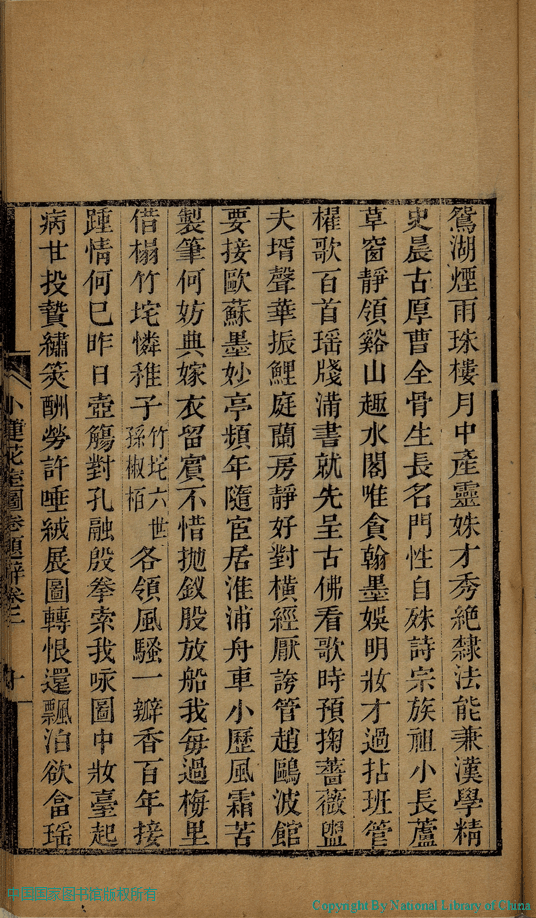 鴛湖煙雨珠樓月中產靈姝才秀絕隸法能兼漢學精
史晨古厚曹全骨生長名門性自殊詩宗族祖小長蘆
草窗靜領谿山趣水閣唯貪翰墨娛明妝才過拈班管
櫂歌百首瑶牋滿書就先呈古佛看歌時預掬薔薇盥
夫壻聲華振鯉庭蘭房靜好對橫經厭誇管趙鷗波館
要接歐蘇墨妙亭頻年隨宦居淮浦舟車小歷風霜苦
製筆何妨典嫁衣留賓不惜拋釵股放船我每過梅里
借榻竹垞憐稚子竹垞六世孫椒栢各領風騷一瓣香百年接
踵情何已昨日壺觴對孔融殷拳索我咏圖中妝臺起
病廿投贄繡筴酬勞許唾絨展圖轉恨還飄泊欲畣瑶
小蓮花室圖卷題辭卷二
十
中国国家图书馆版权所有
Copyright By National Library of China